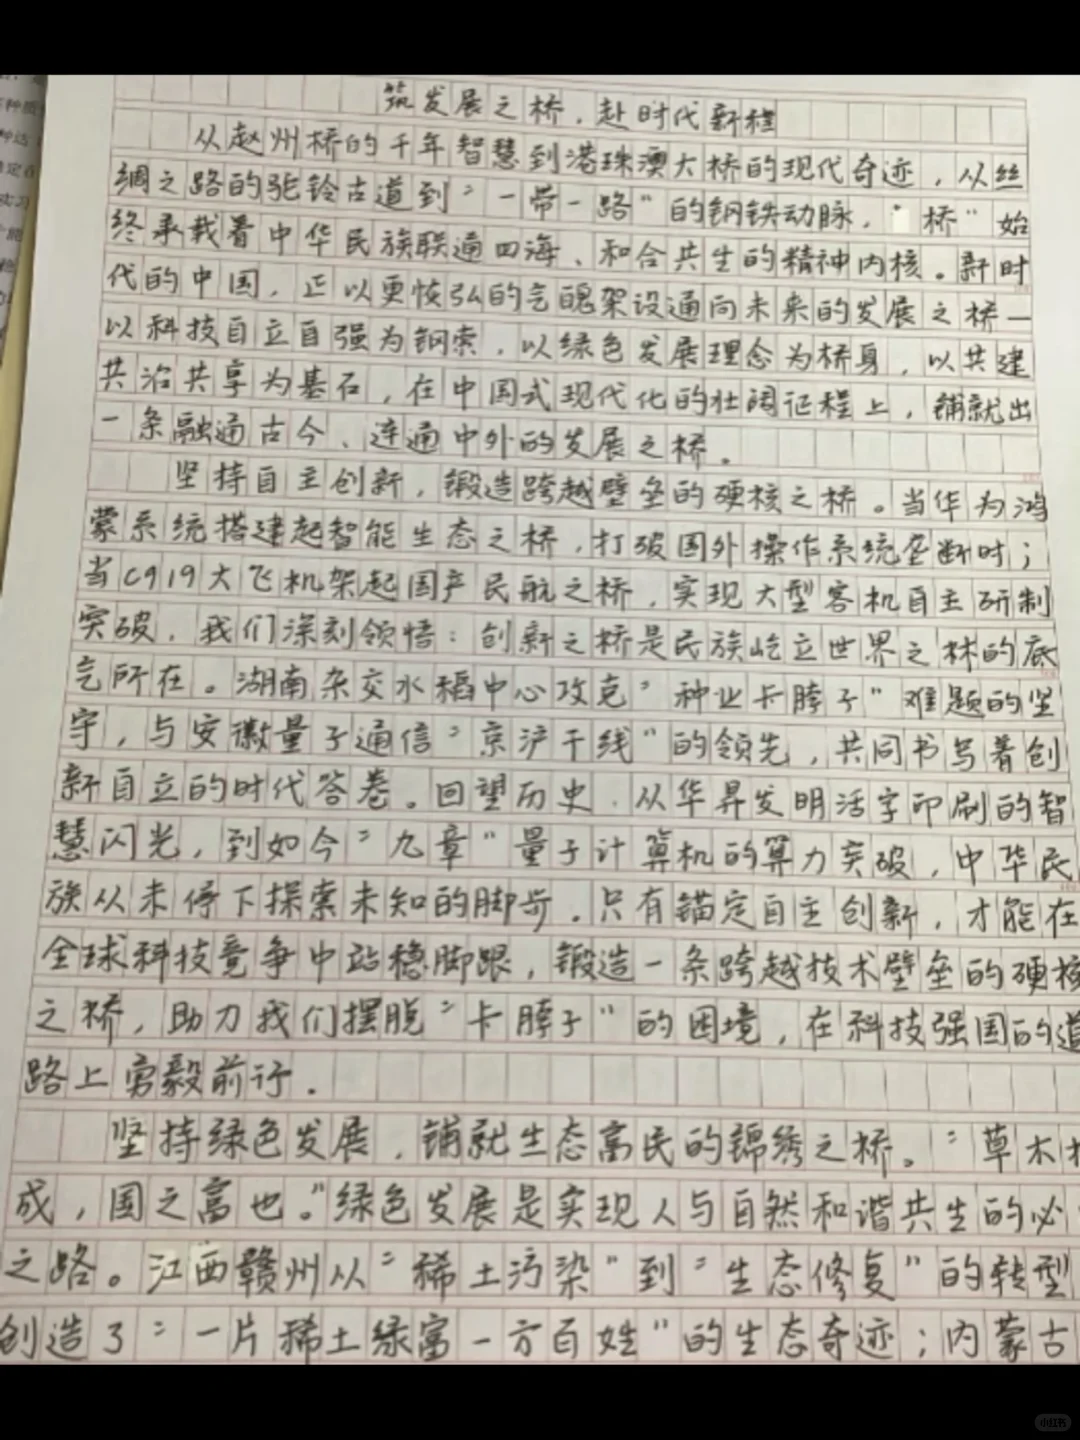 筑发展之桥，赴时代新程
从赵州桥的千年智慧到港珠澳大桥的现代奇迹，从丝
绸之路的驼铃古道到“一带一路”的钢铁动脉，“桥”始
终承载着中华民族联通四海、和合共生的精神内核。新时
代的中国，正以更恢弘的气魄架设通向未来的发展之桥—
以科技自立自强为钢索，以绿色发展理念为桥身，以共建
共治共享为基石，在中国式现代化的壮阔征程上，铺就出
一条融通古今、连通中外的发展之桥。
坚持自主创新，锻造跨越壁垒的硬核之桥。当华为鸿
蒙系统搭建起智能生态之桥，打破国外操作系统垄断时；
当C919大飞机架起国产民航之桥，实现大型客机自主研制
突破，我们深刻领悟：创新之桥是民族屹立世界之林的底
气所在。湖南杂交水稻中心攻克“种业卡脖子”难题的坚
守，与安徽量子通信“京沪干线”的领先，共同书写着创
新自立的时代答卷。回望历史，从华昇发明活字印刷的智
慧闪光，到如今“九章”量子计算机的算力突破，中华民
族从未停下探索未知的脚步。只有锚定自主创新，才能在
全球科技竞争中站稳脚跟，锻造一条跨越技术壁垒的硬核
之桥，助力我们摆脱“卡脖子”的困境，在科技强国的道
路上勇毅前行。
坚持绿色发展，铺就生态富民的锦绣之桥。“草木
成，国之富也。”绿色发展是实现人与自然和谐共生的必
之路。江西赣州从“稀土污染”到“生态修复”的转型
创造了“一片稀土绿富一方百姓”的生态奇迹；内蒙古
小红书